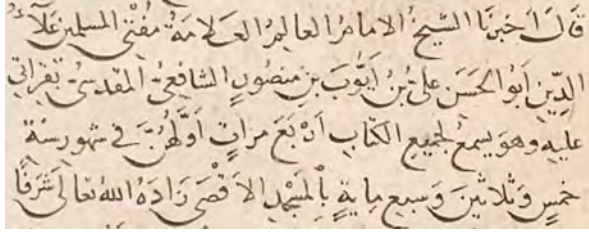 قال اخبرنا الشيخ الامام العالم العلامة مفتي المسلمين علاء
الدين ابو الحسن علي بن ايوب بن منصور الشافعي المقدسي بقراتي
عليه وهو يسمع لجميع الكتاب اربع مرات اولهن في شهور سنة
خمس وثلاثين وسبع ماية بالمسجد الاقصى زاده الله تعالى شرفا